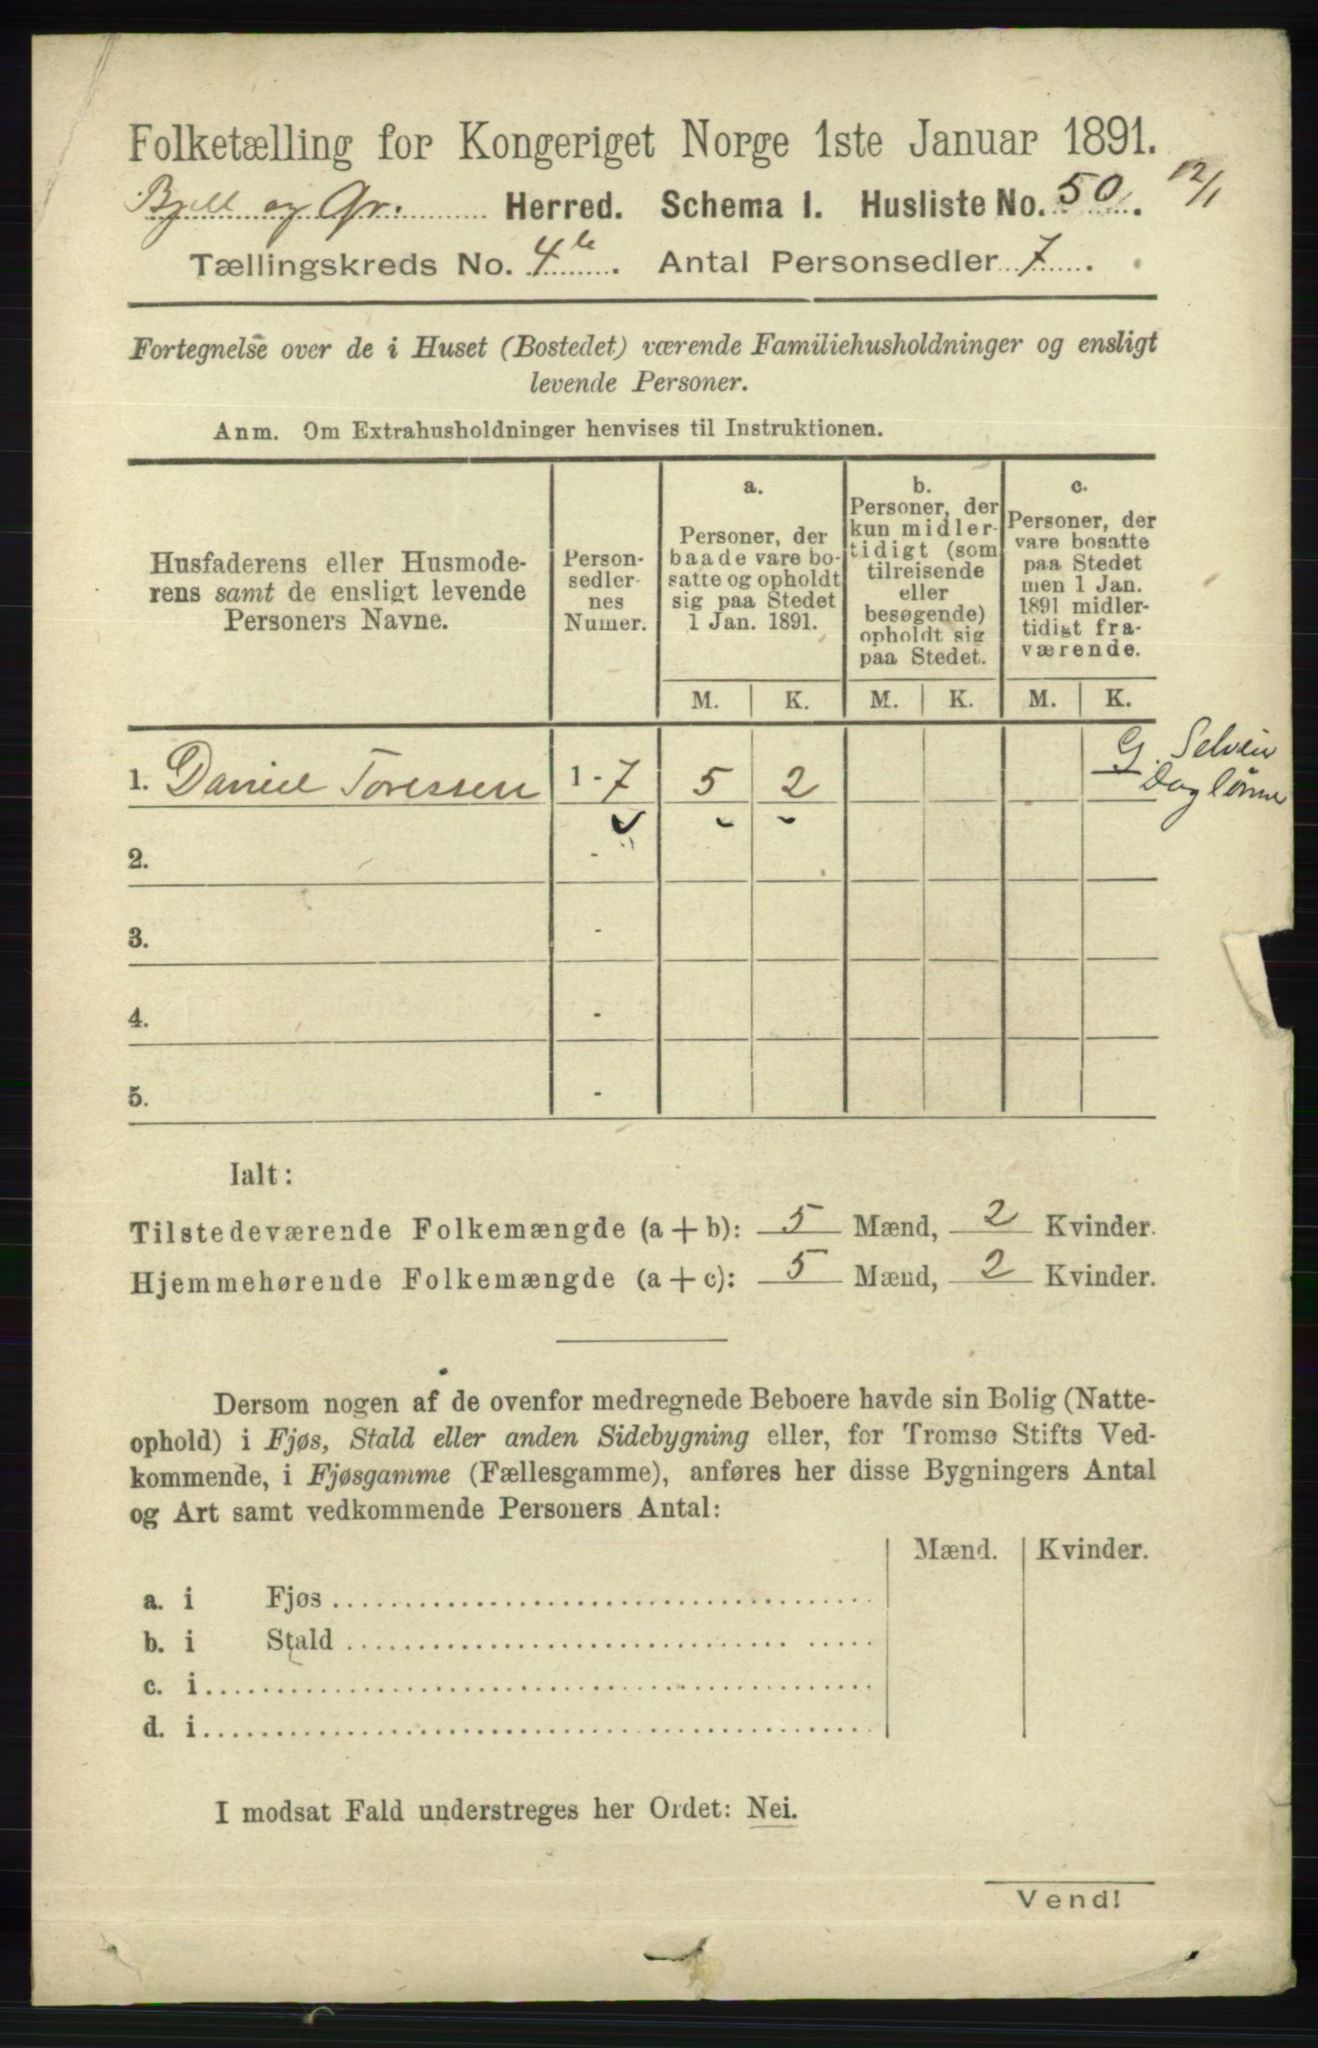 Folketælling for Kongeriget Norge 1ste Januar 1891.
Bjell og Gr. Herred. Schema I. Husliste No. 50. 12/1
Tællingskreds No. 4 b. Antal Personsedler 7.
Fortegnelse over de i Huset (Bostedet) værende Familiehusholdninger og ensligt
levende Personer.
Anm. Om Extrahusholdninger henvises til Instruktionen.
Husfaderens eller Husmode-
rens samt de ensligt levende
Personers Navne.
Person-
sedler-
nes
Numer.
a.
Personer, der
baade vare bo-
satte og opholdt
sig paa Stedet
1 Jan. 1891.
b.
Personer, der
kun midler-
tidigt (som
tilreisende
eller
besøgende)
opholdt sig
paa Stedet.
c.
Personer, der
vare bosatte
paa Stedet
men 1 Jan.
1891 midler-
tidigt fra-
værende.
M. K. M. K. M. K.
1. Daniel Toressen 1 - 7 5 2
G. Selveier
Daglønner
2. -
3. -
4. -
5. -
Ialt:
Tilstedeværende Folkemængde (a + b): 5 Mænd, 2 Kvinder.
Hjemmehørende Folkemængde (a + c): 5 Mænd, 2 Kvinder.
Dersom nogen af de ovenfor medregnede Beboere havde sin Bolig (Natte-
ophold) i Fjøs, Stald eller anden Sidebygning eller, for Tromsø Stifts Ved-
kommende, i Fjøsgamme (Fællesgamme), anføres her disse Bygningers Antal
og Art samt vedkommende Personers Antal:
Mænd. Kvinder.
a. i Fjøs
b. i Stald
c. i
d. i
I modsat Fald understreges her Ordet: Nei.
Vend!